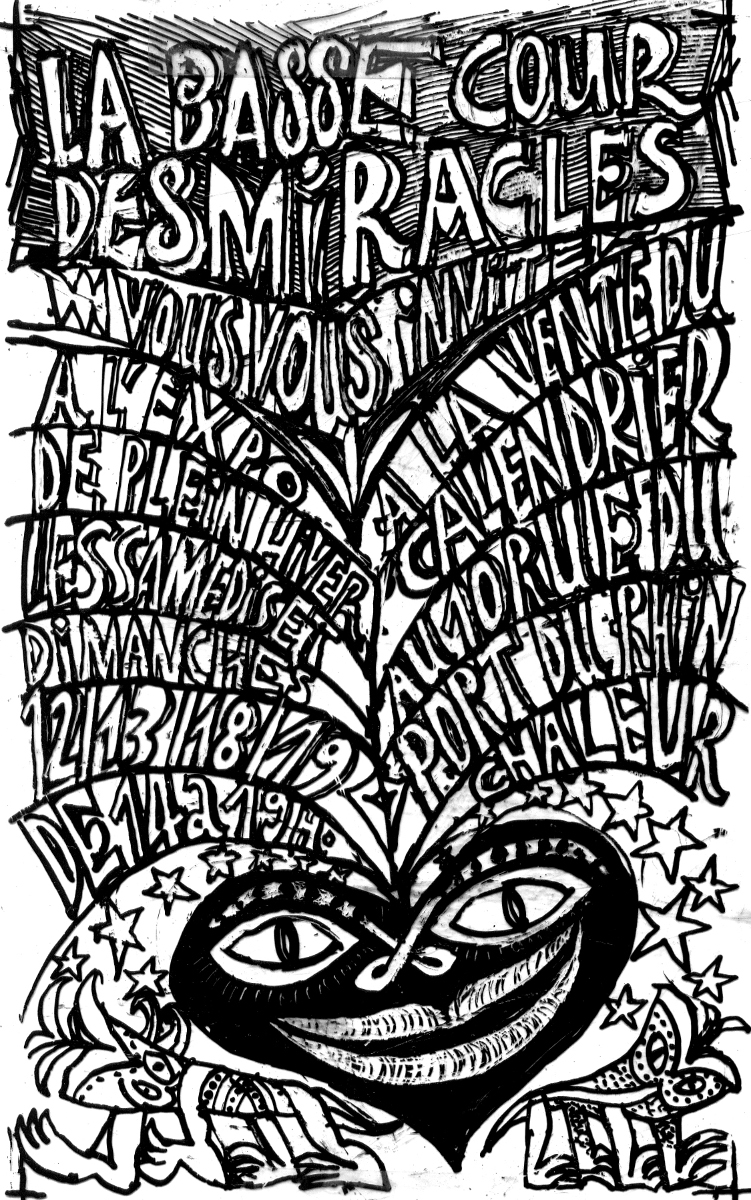 LA BASSE COUR
DES MIRACLES
VOUS VOUS INVITE
A L'EXPO
DE PLEIN HIVER
LES SAMEDIS ET
DIMANCHES
12/13/18/19
DE 14 à 19H.
A LA VENTE DU
CALENDRIER
AU 10 RUE DU
PORT DU RHIN
CHALEUR